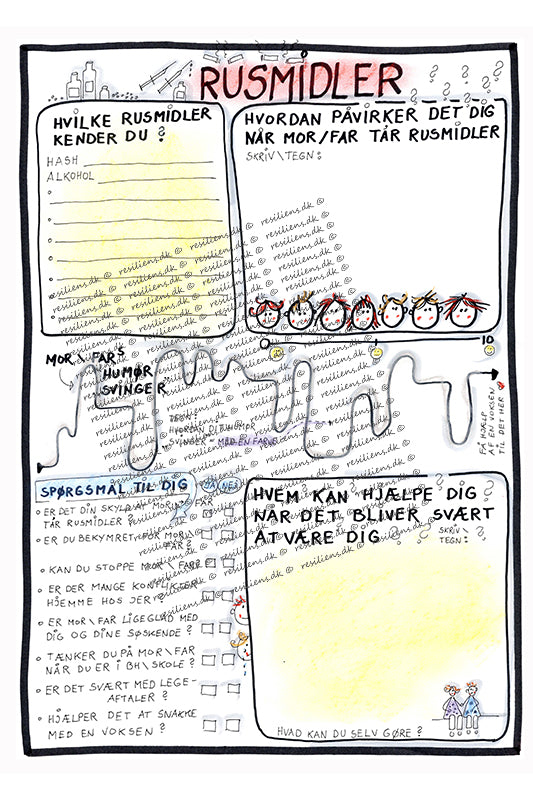 RUSMIDLER
HVILKE RUSMIDLER
KENDER DU ?
HASH
ALKOHOL
HVORDAN PÅVIRKER DET DIG
NÅR MOR/FAR TAR RUSMIDLER
SKRIV\TEGN:
0 10
MOR\FARS
HUMØR
SVINGER
TEGN:
HVORDAN DIT HUMØR
SVINGER MED EN FARVE
FÅ HJÆLP
AF EN VOKSEN
TIL DET HER
SPØRGSMÅL TIL DIG
JA NEJ
ER DET DIN SKYLD AT MOR\FAR
TAR RUSMIDLER ?
ER DU BEKYMRET FOR MOR\
FAR ?
KAN DU STOPPE MOR\FAR?
ER DER MANGE KONFLIKTER
HJEMME HOS JER ?
ER MOR\FAR LIGEGLAD MED
DIG OG DINE SØSKENDE ?
TÆNKER DU PÅ MOR\FAR
NÅR DU ER I BH\SKOLE ?
ER DET SVÆRT MED LEGE-
AFTALER ?
HJÆLPER DET AT SNAKKE
MED EN VOKSEN ?
HVEM KAN HJÆLPE DIG
NÅR DET BLIVER SVÆRT
AT VÆRE DIG
SKRIV\
TEGN:
HVAD KAN DU SELV GØRE ?
resiliens.dk ©